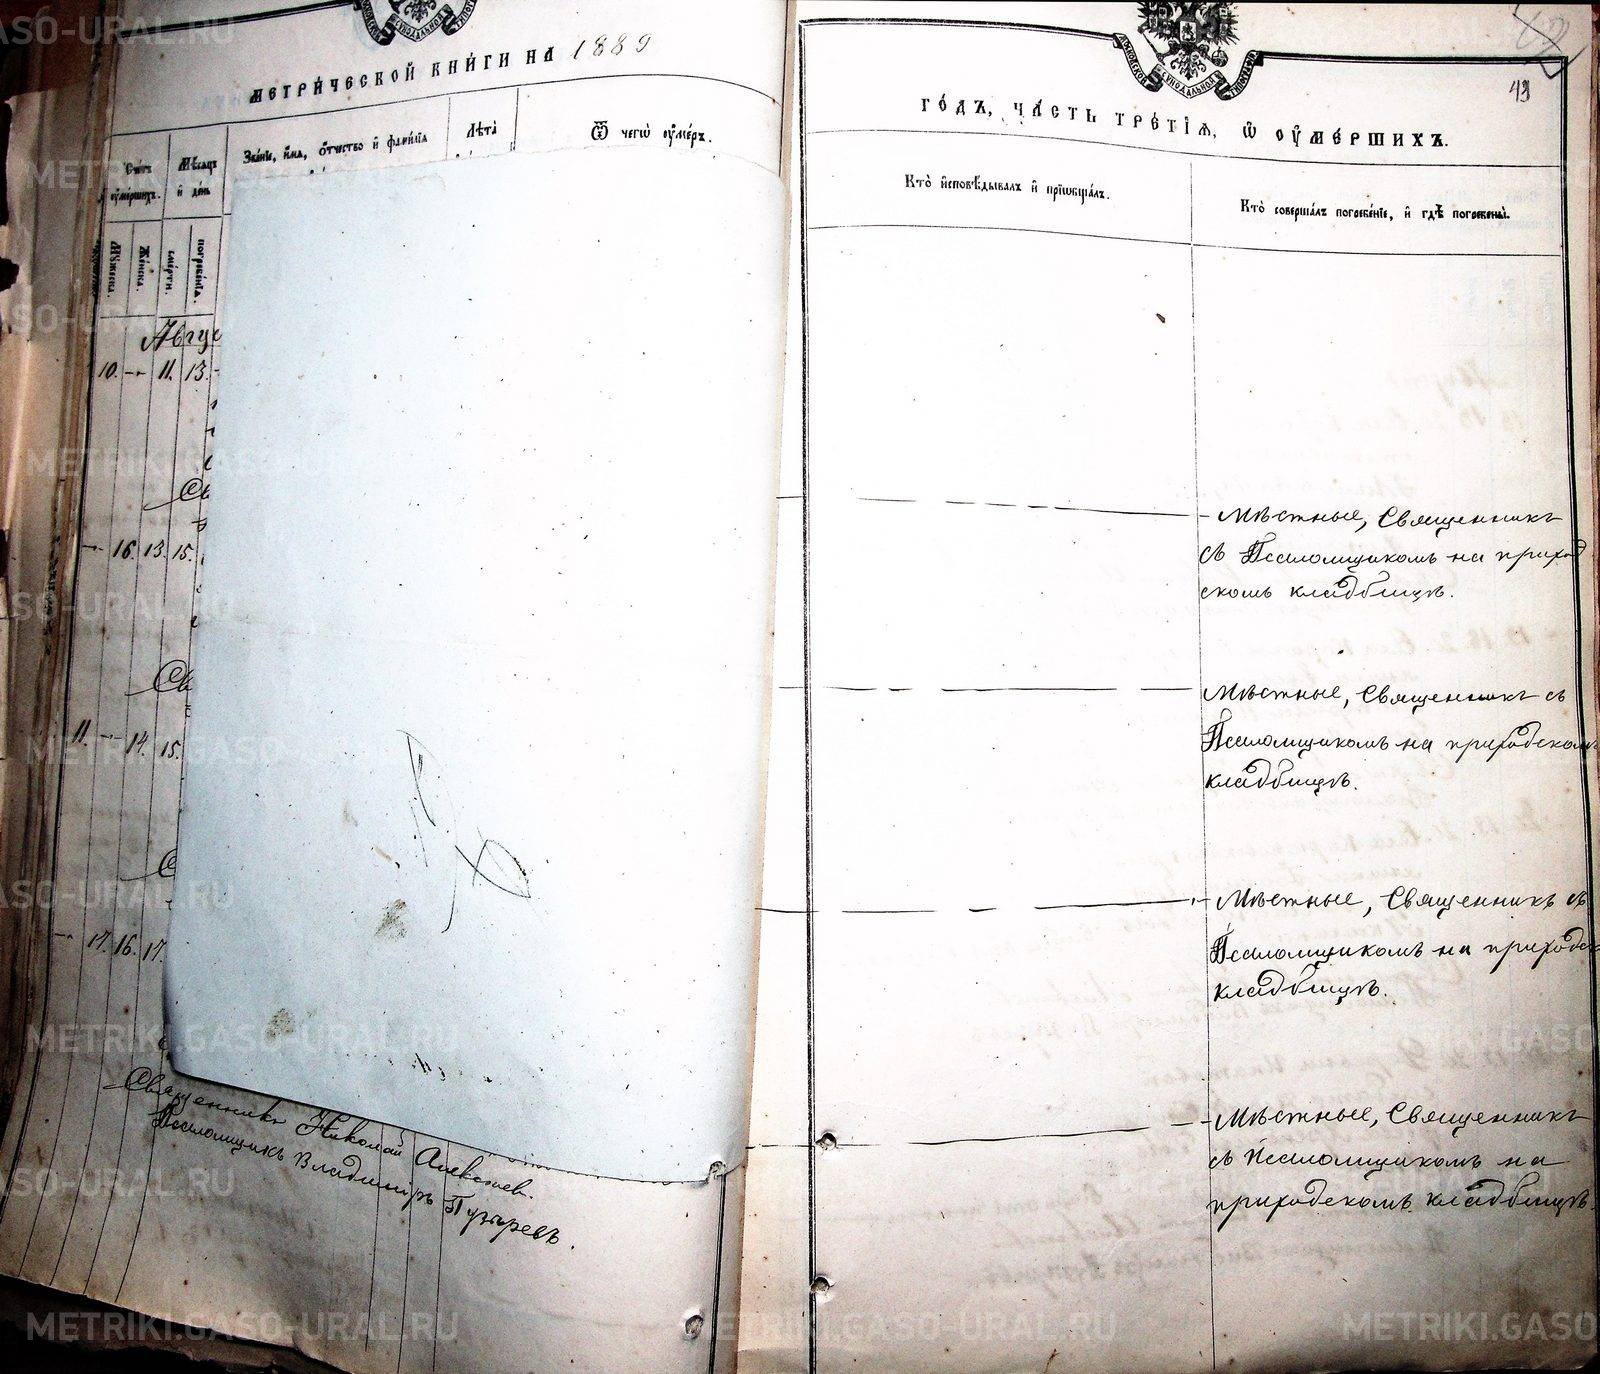 МЕТРИ́ЧЕСКОЙ КНИ́ГИ НА 1889
Счетъ оумершихъ.
Мѣсяцъ и день
Зва́нїе, и҆́мѧ, ѻ҆́тчество и҆ фами́лїѧ
Лѣта̀
Ѿ чегѡ̀ оу҆ме́ръ.
Мужеска.
Женска.
смерти.
погребенїѧ.
Авгус
10. — 11. 13.
Св
— 16. 13. 15.
Св
11. — 14. 15.
С
— 17. 16. 17.
Священникъ Николай Алексѣев.
Псаломщикъ Владиміръ Пузыревъ.
МОСКОВСКОЙ СѴНОДАЛЬНОЙ ТИПОГРАФІИ
43
ГО́ДЪ, ЧА́СТЬ ТРЕ́ТЇѦ, Ѡ҆ ОУ҆МЕ́РШИХЪ.
Кто̀ и҆сповѣ́дывалъ и҆ прїѡбща́лъ.
Кто̀ соверша́лъ погребе́нїе, и҆ гдѣ̀ погребены̀.
Мѣстные, Священникъ
съ Псаломщикомъ на приход
скомъ кладбищѣ.
Мѣстные, Священникъ съ
Псаломщикомъ на приходскомъ
кладбищѣ.
Мѣстные, Священникъ съ
Псаломщикомъ на приходск
кладбищѣ.
Мѣстные, Священникъ
съ Псаломщикомъ на
приходскомъ кладбищѣ.
METRIKI.GASO-URAL.RU